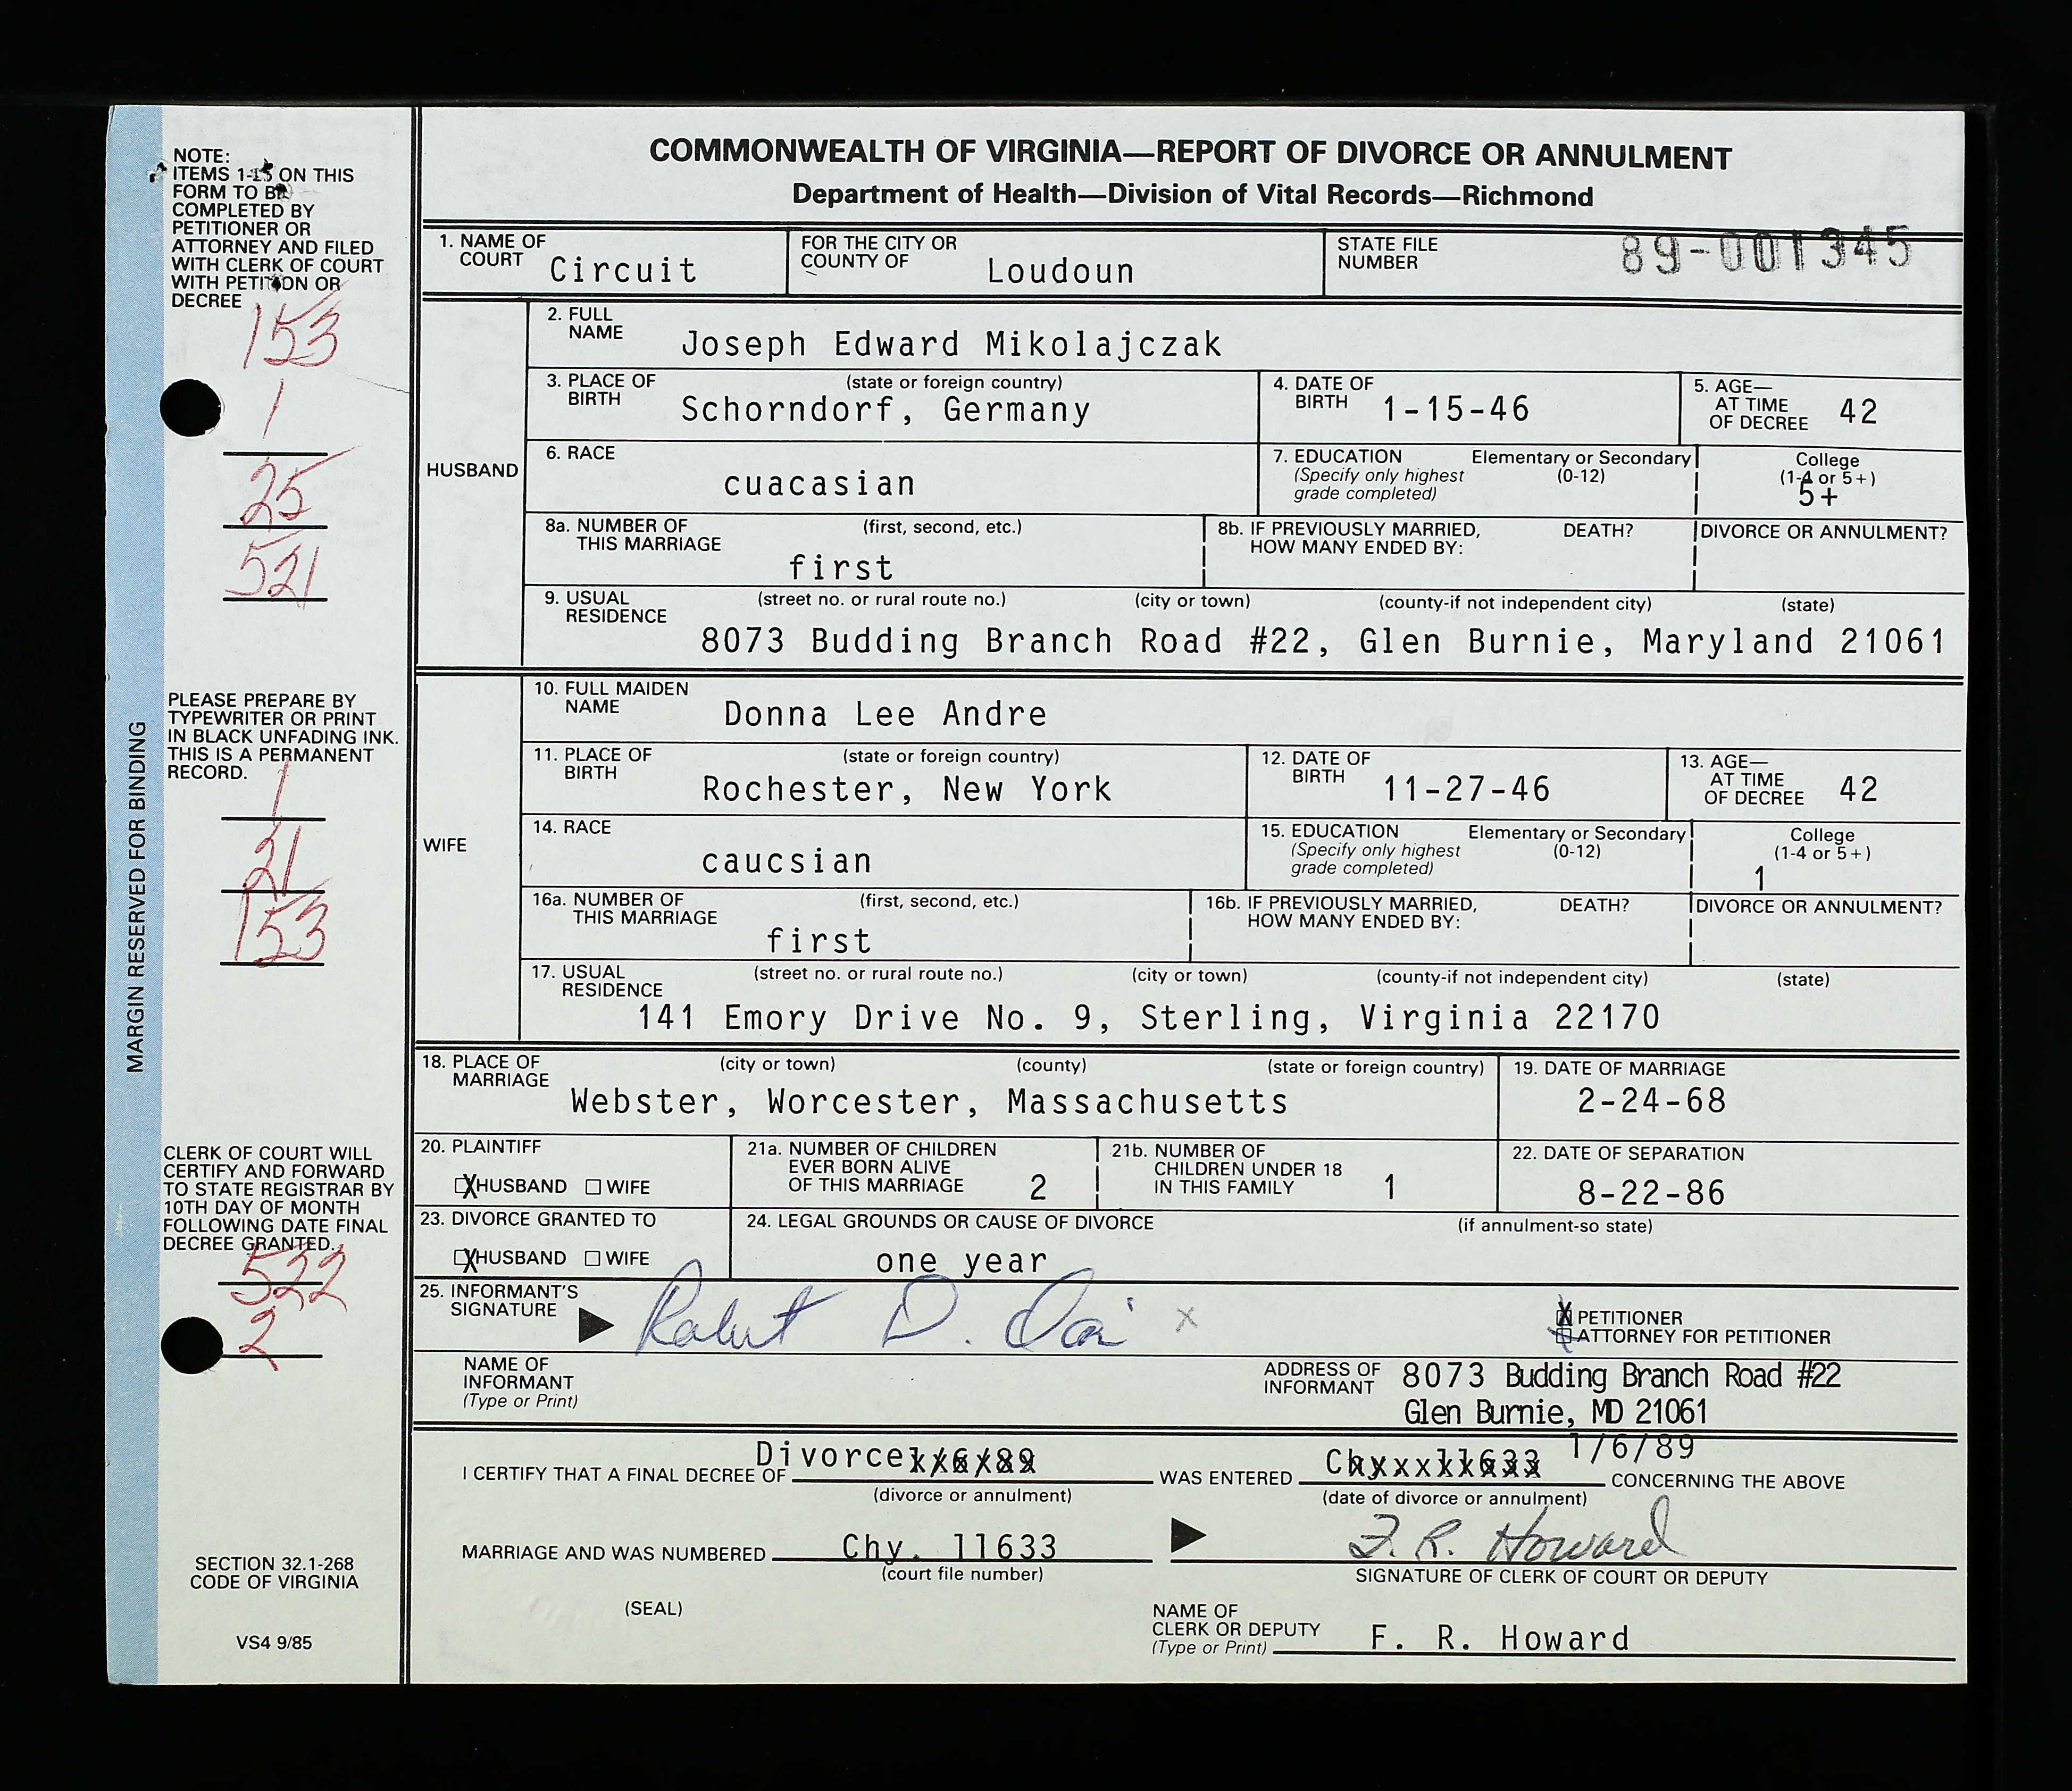 COMMONWEALTH OF VIRGINIA—REPORT OF DIVORCE OR ANNULMENT
Department of Health—Division of Vital Records—Richmond
NOTE:
ITEMS 1-15 ON THIS
FORM TO BE
COMPLETED BY
PETITIONER OR
ATTORNEY AND FILED
WITH CLERK OF COURT
WITH PETITION OR
DECREE
153
1
25
521
PLEASE PREPARE BY
TYPEWRITER OR PRINT
IN BLACK UNFADING INK.
THIS IS A PERMANENT
RECORD.
1
31
153
CLERK OF COURT WILL
CERTIFY AND FORWARD
TO STATE REGISTRAR BY
10TH DAY OF MONTH
FOLLOWING DATE FINAL
DECREE GRANTED.
522
2
SECTION 32.1-268
CODE OF VIRGINIA
VS4 9/85
MARGIN RESERVED FOR BINDING
1. NAME OF COURT Circuit
FOR THE CITY OR COUNTY OF Loudoun
STATE FILE NUMBER 89-001345
HUSBAND
2. FULL NAME Joseph Edward Mikolajczak
3. PLACE OF BIRTH (state or foreign country) Schorndorf, Germany
4. DATE OF BIRTH 1-15-46
5. AGE— AT TIME OF DECREE 42
6. RACE cuacasian
7. EDUCATION (Specify only highest grade completed) Elementary or Secondary (0-12) College (1-4 or 5+) 5+
8a. NUMBER OF THIS MARRIAGE (first, second, etc.) first
8b. IF PREVIOUSLY MARRIED, HOW MANY ENDED BY: DEATH? DIVORCE OR ANNULMENT?
9. USUAL RESIDENCE (street no. or rural route no.) (city or town) (county-if not independent city) (state)
8073 Budding Branch Road #22, Glen Burnie, Maryland 21061
WIFE
10. FULL MAIDEN NAME Donna Lee Andre
11. PLACE OF BIRTH (state or foreign country) Rochester, New York
12. DATE OF BIRTH 11-27-46
13. AGE— AT TIME OF DECREE 42
14. RACE caucsian
15. EDUCATION (Specify only highest grade completed) Elementary or Secondary (0-12) College (1-4 or 5+) 1
16a. NUMBER OF THIS MARRIAGE (first, second, etc.) first
16b. IF PREVIOUSLY MARRIED, HOW MANY ENDED BY: DEATH? DIVORCE OR ANNULMENT?
17. USUAL RESIDENCE (street no. or rural route no.) (city or town) (county-if not independent city) (state)
141 Emory Drive No. 9, Sterling, Virginia 22170
18. PLACE OF MARRIAGE (city or town) (county) (state or foreign country)
Webster, Worcester, Massachusetts
19. DATE OF MARRIAGE 2-24-68
20. PLAINTIFF X HUSBAND WIFE
21a. NUMBER OF CHILDREN EVER BORN ALIVE OF THIS MARRIAGE 2
21b. NUMBER OF CHILDREN UNDER 18 IN THIS FAMILY 1
22. DATE OF SEPARATION 8-22-86
23. DIVORCE GRANTED TO X HUSBAND WIFE
24. LEGAL GROUNDS OR CAUSE OF DIVORCE (if annulment-so state) one year
25. INFORMANT'S SIGNATURE Robert D. X
X PETITIONER
ATTORNEY FOR PETITIONER
NAME OF INFORMANT (Type or Print)
ADDRESS OF INFORMANT 8073 Budding Branch Road #22
Glen Burnie, MD 21061
I CERTIFY THAT A FINAL DECREE OF Divorce 1/6/89 WAS ENTERED Chy. 11633 1/6/89 CONCERNING THE ABOVE
(divorce or annulment) (date of divorce or annulment)
MARRIAGE AND WAS NUMBERED Chy. 11633 F. R. Howard
(court file number) SIGNATURE OF CLERK OF COURT OR DEPUTY
(SEAL)
NAME OF CLERK OR DEPUTY (Type or Print) F. R. Howard